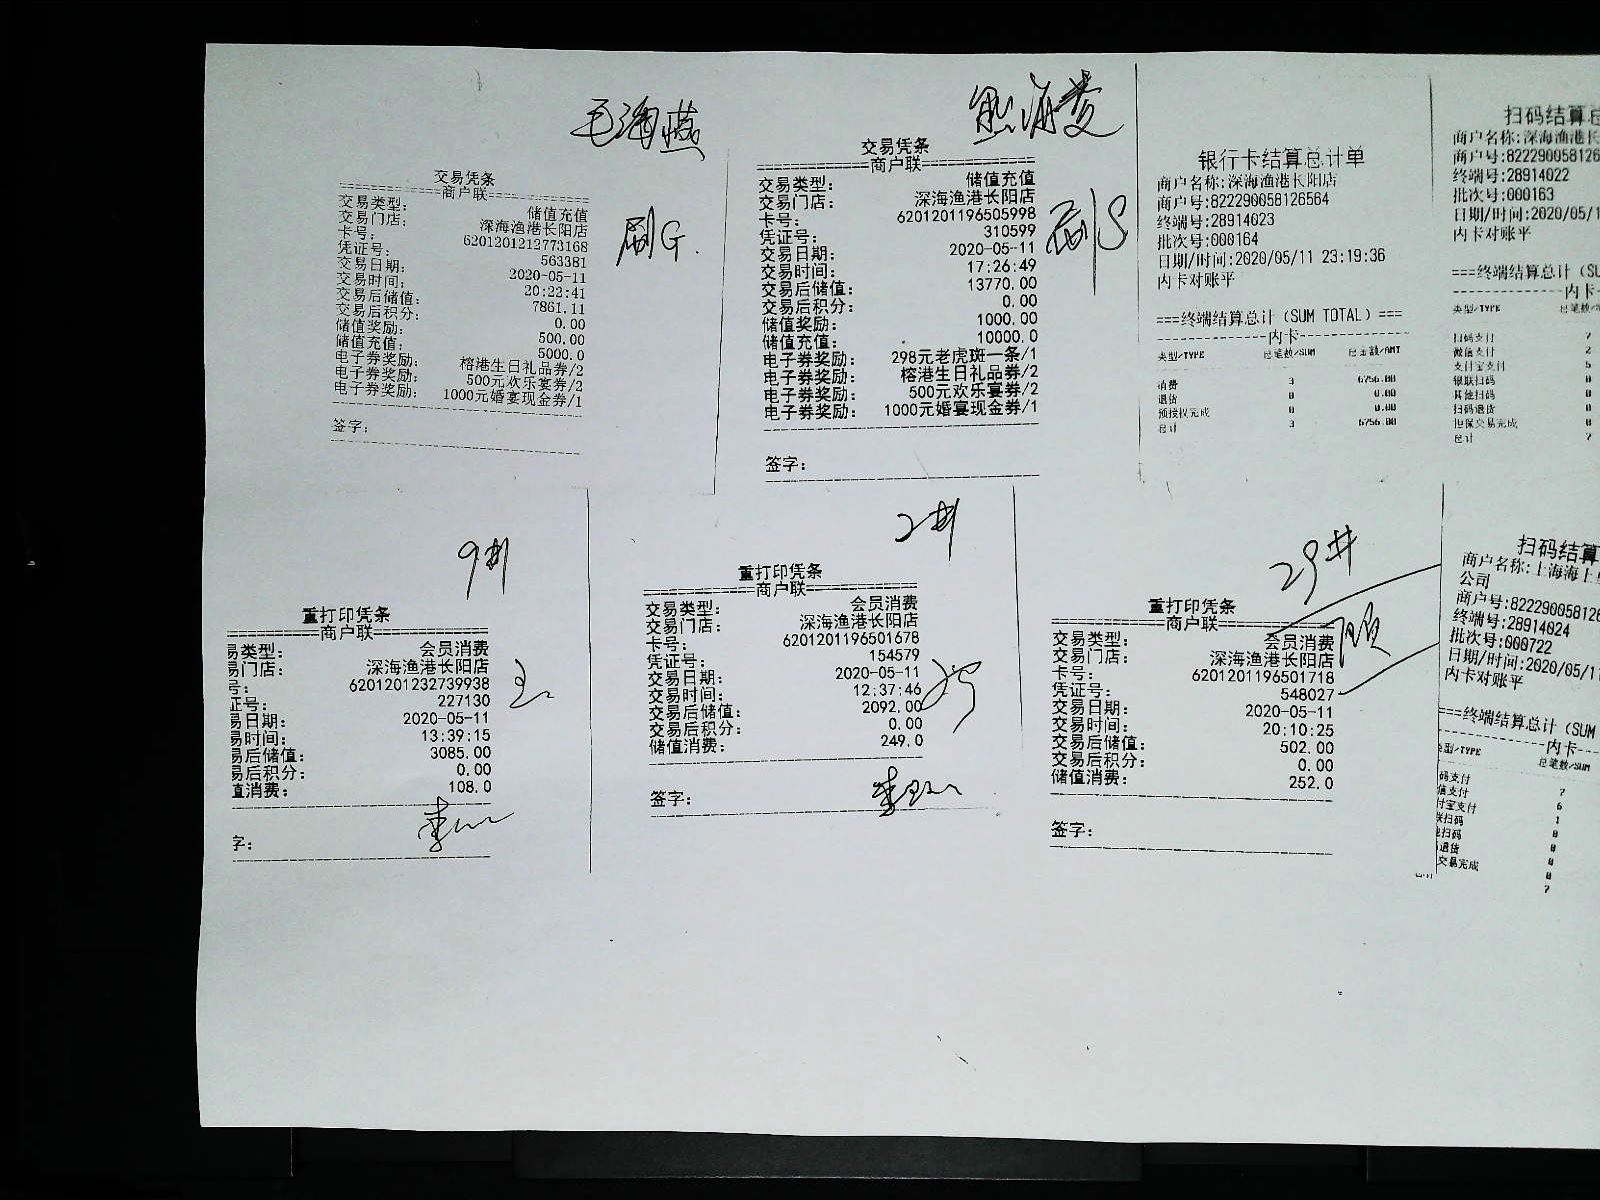 毛海燕
交易凭条
商户联
交易类型： 储值充值
交易门店： 深海渔港长阳店
卡号： 6201201212773168
凭证号： 563381
交易日期： 2020-05-11
交易时间： 20:22:41
交易后储值： 7861.11
交易后积分： 0.00
储值奖励： 500.00
储值充值： 5000.0
电子券奖励： 榕港生日礼品券/2
电子券奖励： 500元欢乐宴券/2
电子券奖励： 1000元婚宴现金券/1
签字：
刷G.
交易凭条
商户联
交易类型： 储值充值
交易门店： 深海渔港长阳店
卡号： 6201201196505998
凭证号： 310599
交易日期： 2020-05-11
交易时间： 17:26:49
交易后储值： 13770.00
交易后积分： 0.00
储值奖励： 1000.00
储值充值： 10000.0
电子券奖励： 298元老虎斑一条/1
电子券奖励： 榕港生日礼品券/2
电子券奖励： 500元欢乐宴券/2
电子券奖励： 1000元婚宴现金券/1
签字：
银行卡结算总计单
商户名称:深海渔港长阳店
商户号:822290058126564
终端号:28914023
批次号:000164
日期/时间:2020/05/11 23:19:36
内卡对账平
===终端结算总计（SUM TOTAL）===
内卡
类型/TYPE 总笔数/SUM 总金额/AMT
消费 3 6756.00
退货 0 0.00
预授权完成 0 0.00
总计 3 6756.00
扫码结算总
商户名称:深海渔港长
商户号:822290058126
终端号:28914022
批次号:000163
日期/时间:2020/05/1
内卡对账平
===终端结算总计（SU
内卡
类型/TYPE 总笔数/
扫码支付 7
微信支付 2
支付宝支付 5
银联扫码 0
其他扫码 0
扫码退货 0
担保交易完成 0
总计 7
9#
重打印凭条
商户联
易类型： 会员消费
易门店： 深海渔港长阳店
号： 6201201232739938
证号： 227130
易日期： 2020-05-11
易时间： 13:39:15
易后储值： 3085.00
易后积分： 0.00
值消费： 108.0
字：
2#
重打印凭条
商户联
交易类型： 会员消费
交易门店： 深海渔港长阳店
卡号： 6201201196501678
凭证号： 154579
交易日期： 2020-05-11
交易时间： 12:37:46
交易后储值： 2092.00
交易后积分： 0.00
储值消费： 249.0
签字：
29#
重打印凭条
商户联
交易类型： 会员消费
交易门店： 深海渔港长阳店
卡号： 6201201196501718
凭证号： 548027
交易日期： 2020-05-11
交易时间： 20:10:25
交易后储值： 502.00
交易后积分： 0.00
储值消费： 252.0
签字：
扫码结算
商户名称:上海海上
公司
商户号:82229005812
终端号:28914024
批次号:000722
日期/时间:2020/05/11
内卡对账平
===终端结算总计（SUM
内卡
类型/TYPE 总笔数/SUM
码支付 7
信支付 6
付宝支付 1
联扫码 0
他扫码 0
退货 0
交易完成 0
总计 7